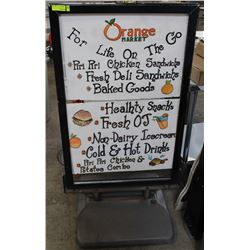 Orange
MARKET
For Life On The Go
Piri Piri Chicken Sandwichs
Fresh Deli Sandwichs
Baked Goods
Healhty Snacks
Fresh OJ
Non-Dairy Icecream
Cold & Hot Drinks
Piri Piri Chicken &
Potatoe Combo